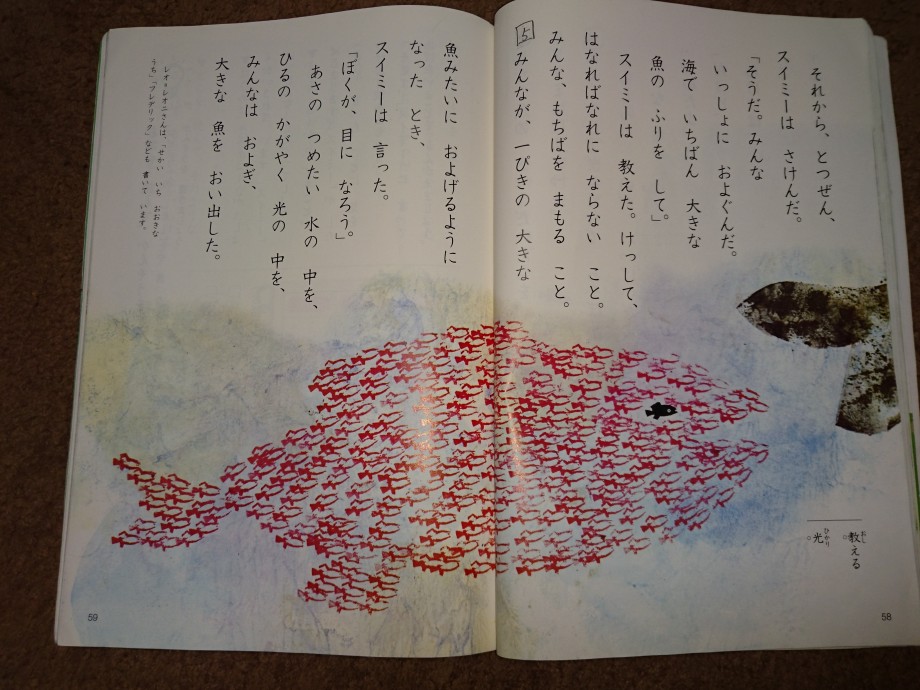 それから、とつぜん、
スイミーは さけんだ。
「そうだ。みんな
いっしょに およぐんだ。
海で いちばん 大きな
魚の ふりを して。」
スイミーは 教えた。けっして、
はなればなれに ならない こと。
みんな、もちばを まもる こと。
5
みんなが、一ぴきの 大きな
おし
教える。
ひかり
光。
58
魚みたいに およげるように
なった とき、
スイミーは 言った。
「ぼくが、目に なろう。」
あさの つめたい 水の 中を、
ひるの かがやく 光の 中を、
みんなは およぎ、
大きな 魚を おい出した。
レオ=レオニさんは、「せかい いち おおきな
うち」「フレデリック」なども 書いて います。
59